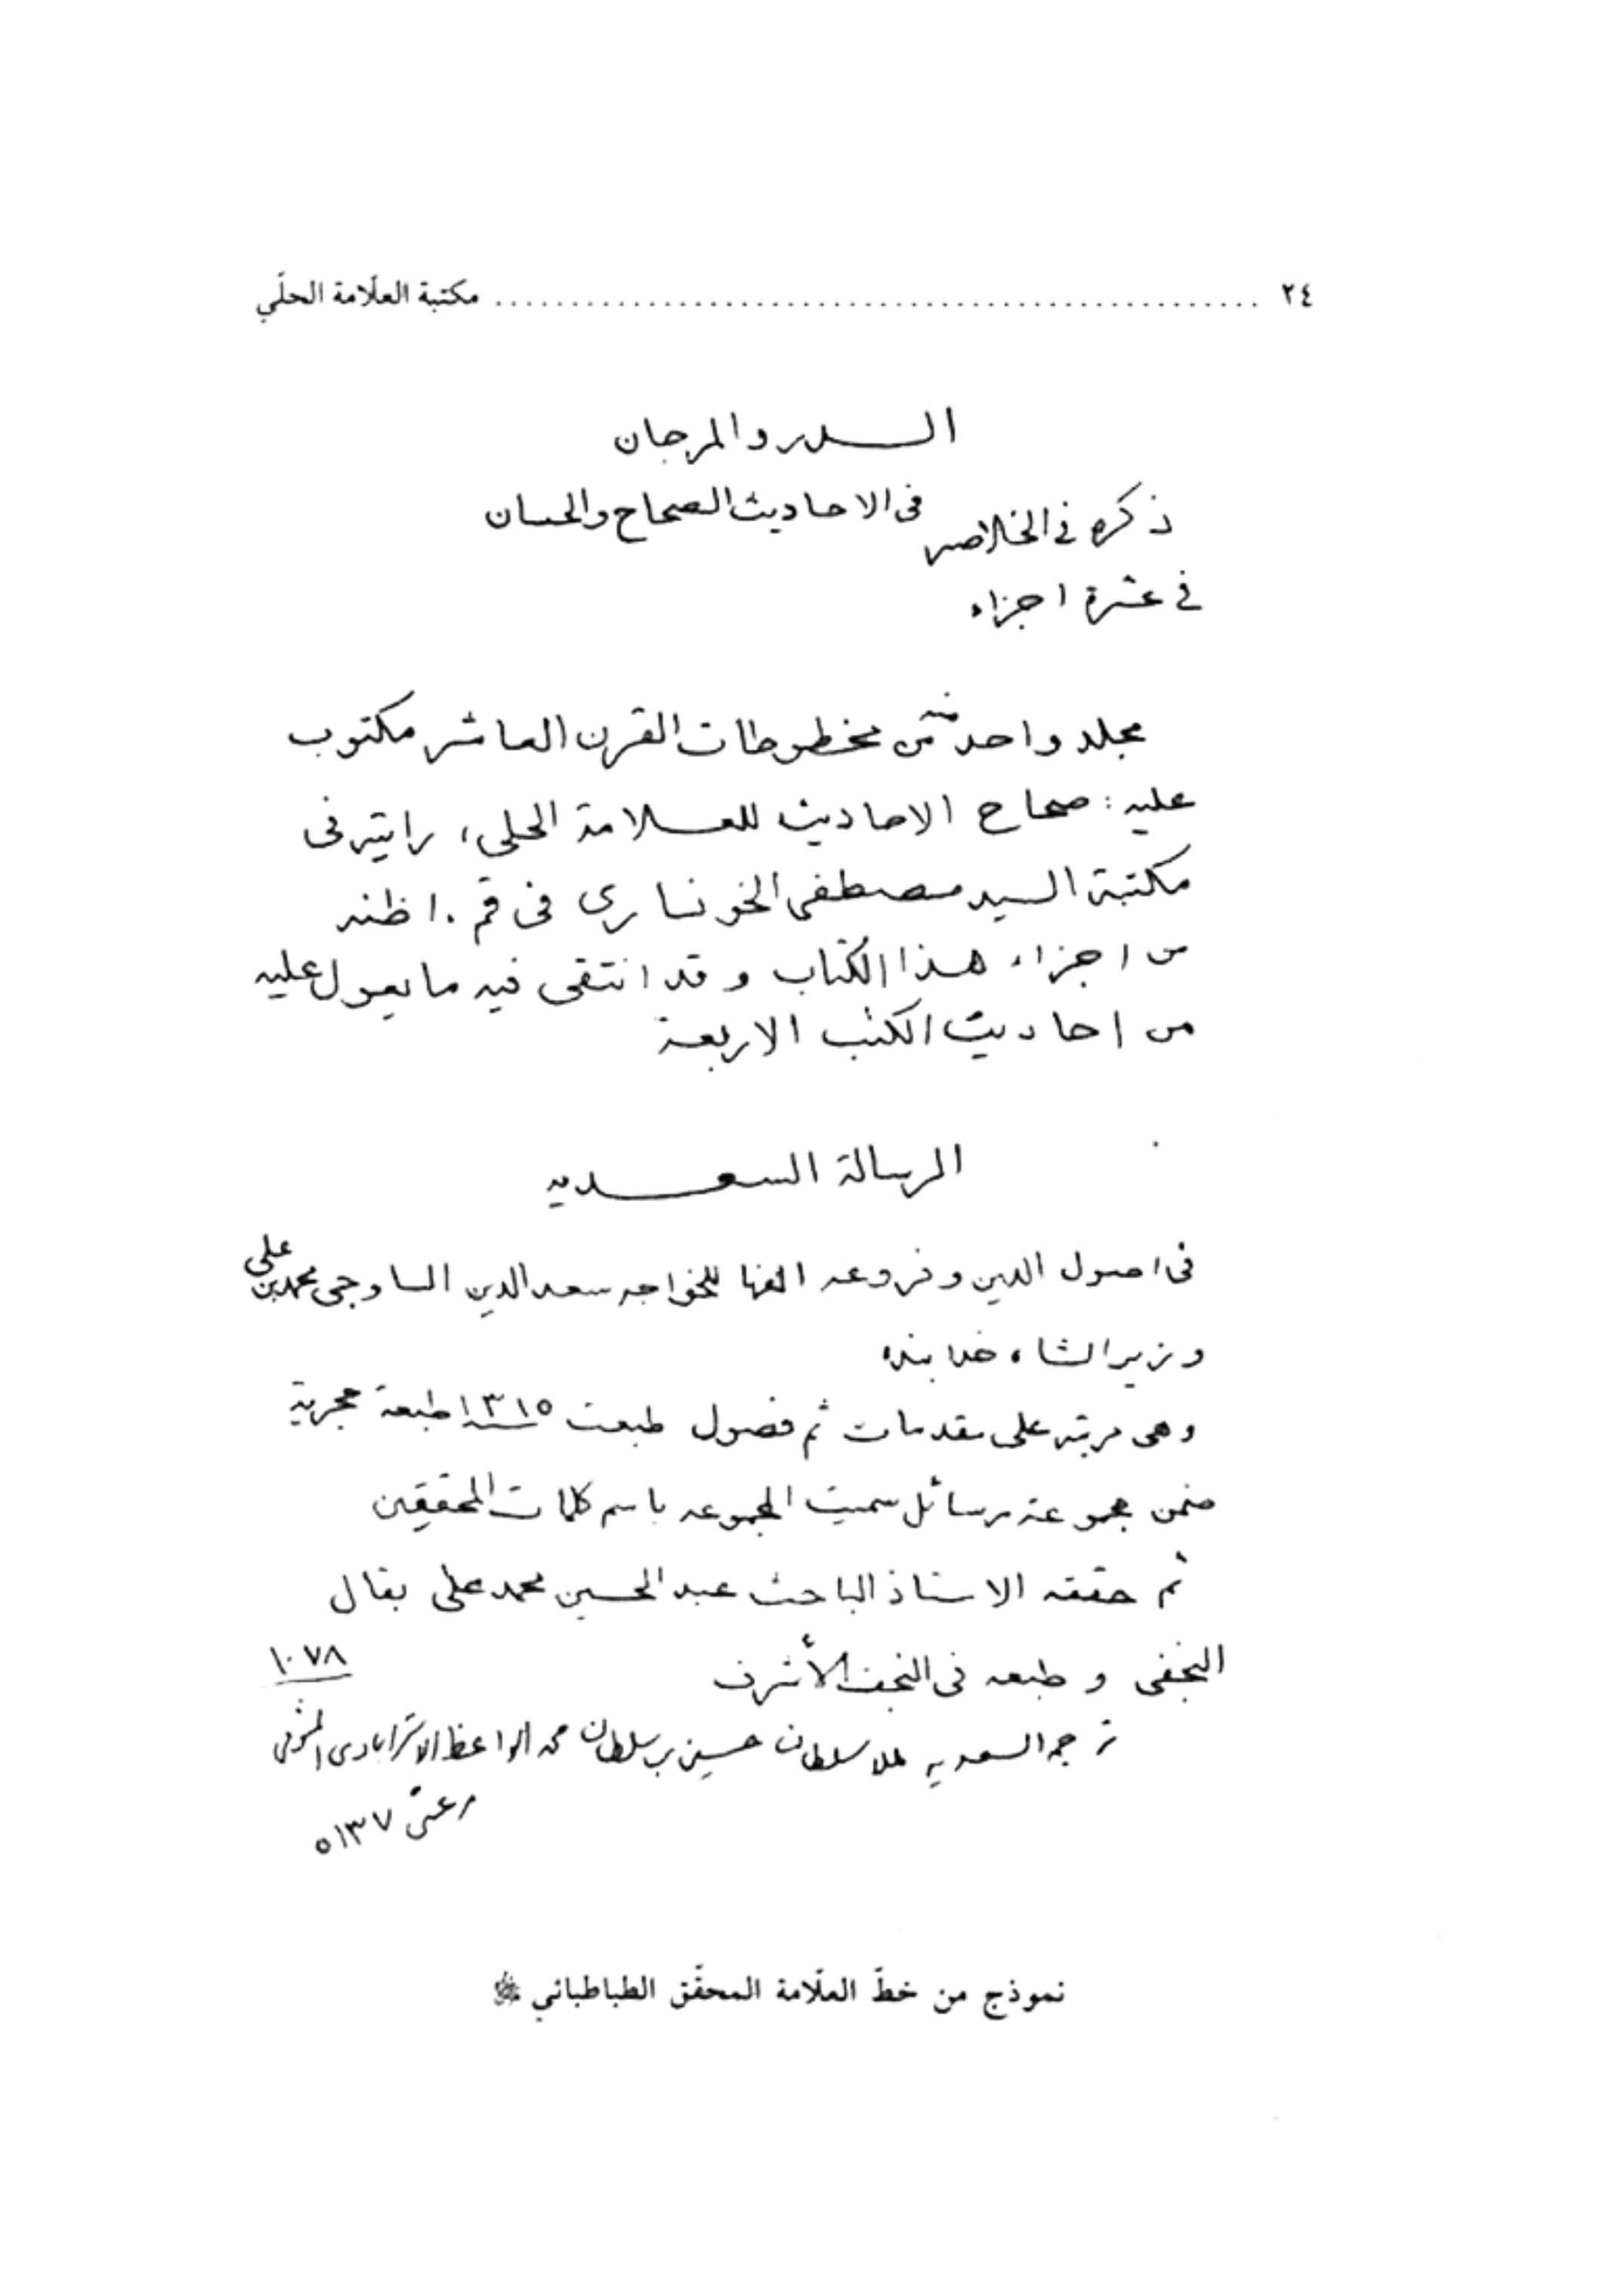 ٢٤ ................................................ مكتبة العلّامة الحلّي
الدر والمرجان
فى الاحاديث الصحاح والحسان
ذكره في الخلاصه
في عشرة اجزاء
مجلد واحد منه من مخطوطات القرن العاشر مكتوب
عليه : صحاح الاحاديث للعلامة الحلي ، رايته فى
مكتبة السيد مصطفى الخونساري فى قم . اظنه
من اجزاء هذا الكتاب و قد انتقى فيه ما يعول عليه
من احاديث الكتب الاربعة
الرسالة السعديه
فى اصول الدين و فروعه الفها للخواجه سعدالدين الساوجى محمد بن على
وزير الشاه خدابنده
وهى مرتبه على مقدمات ثم فصول طبعت سنة ١٣١٥ طبعة حجرية
ضمن مجموعة رسائل سميت المجموعه باسم كلمات المحققين
ثم حققه الاستاذ الباحث عبد الحسين محمد على بقال
النجفى و طبعه فى النجف الأشرف
ترجمه السعديه لملا سلطان حسين بن سلطان محمد الواعظ الاسترابادى المتوفى
١٠٧٨
مرعشى ٥١٣٧
نموذج من خطّ العلّامة المحقّق الطباطبائي